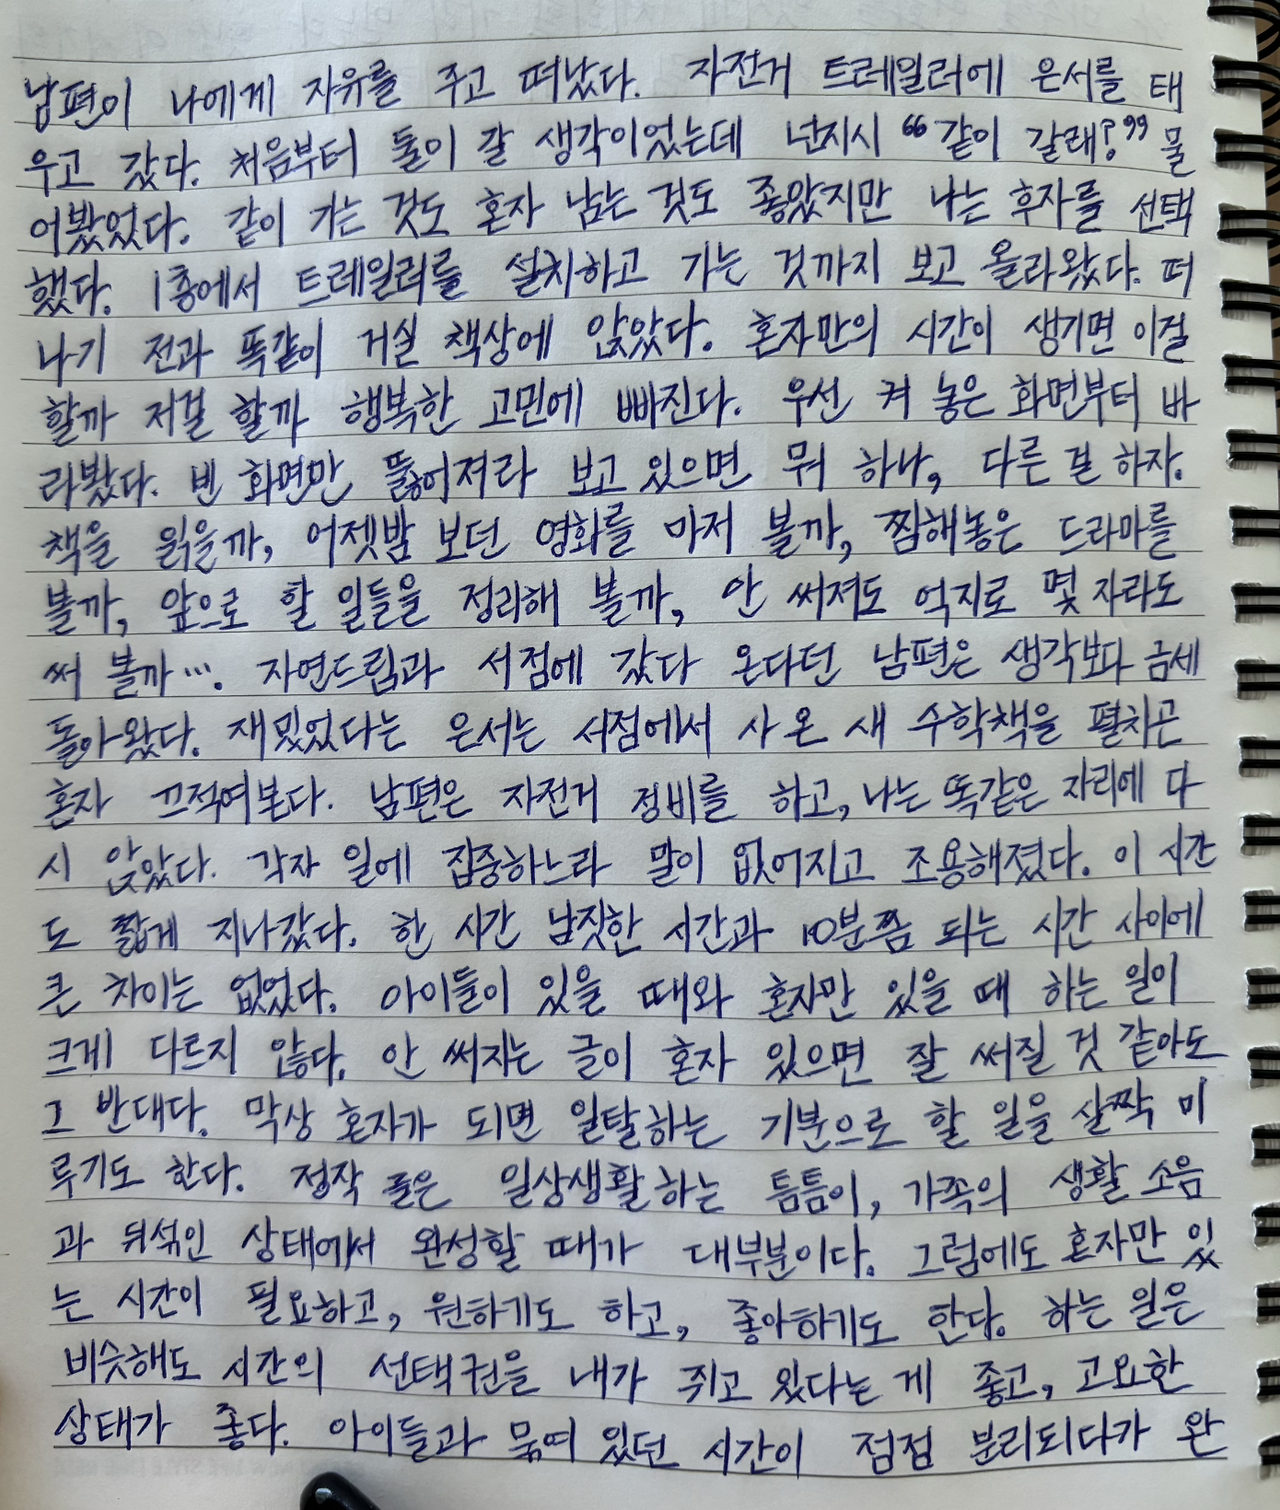 남편이 나에게 자유를 주고 떠났다. 자전거 트레일러에 은서를 태
우고 갔다. 처음부터 둘이 갈 생각이었는데 넌지시 “같이 갈래?” 물
어봤었다. 같이 가는 것도 혼자 남는 것도 좋았지만 나는 후자를 선택
했다. 1층에서 트레일러를 설치하고 가는 것까지 보고 올라왔다. 떠
나기 전과 똑같이 거실 책상에 앉았다. 혼자만의 시간이 생기면 이걸
할까 저걸 할까 행복한 고민에 빠진다. 우선 켜 놓은 화면부터 바
라봤다. 빈 화면만 뚫어져라 보고 있으면 뭐 하나, 다른 걸 하자.
책을 읽을까, 어젯밤 보던 영화를 마저 볼까, 찜해놓은 드라마를
볼까, 앞으로 할 일들을 정리해 볼까, 안 써져도 억지로 몇 자라도
써 볼까…. 자연드림과 서점에 갔다 온다던 남편은 생각보다 금세
돌아왔다. 재밌었다는 은서는 서점에서 사 온 새 수학책을 펼치곤
혼자 끄적여본다. 남편은 자전거 정비를 하고, 나는 똑같은 자리에 다
시 앉았다. 각자 일에 집중하느라 말이 없어지고 조용해졌다. 이 시간
도 짧게 지나갔다. 한 시간 남짓한 시간과 10분쯤 되는 시간 사이에
큰 차이는 없었다. 아이들이 있을 때와 혼자만 있을 때 하는 일이
크게 다르지 않다. 안 써지는 글이 혼자 있으면 잘 써질 것 같아도
그 반대다. 막상 혼자가 되면 일탈하는 기분으로 할 일을 살짝 미
루기도 한다. 정작 일상생활하는 틈틈이, 가족의 생활 소음
과 뒤섞인 상태에서 완성할 때가 대부분이다. 그럼에도 혼자만 있
는 시간이 필요하고, 원하기도 하고, 좋아하기도 한다. 하는 일은
비슷해도 시간의 선택권을 내가 쥐고 있다는 게 좋고, 고요한
상태가 좋다. 아이들과 묶여 있던 시간이 점점 분리되다가 완